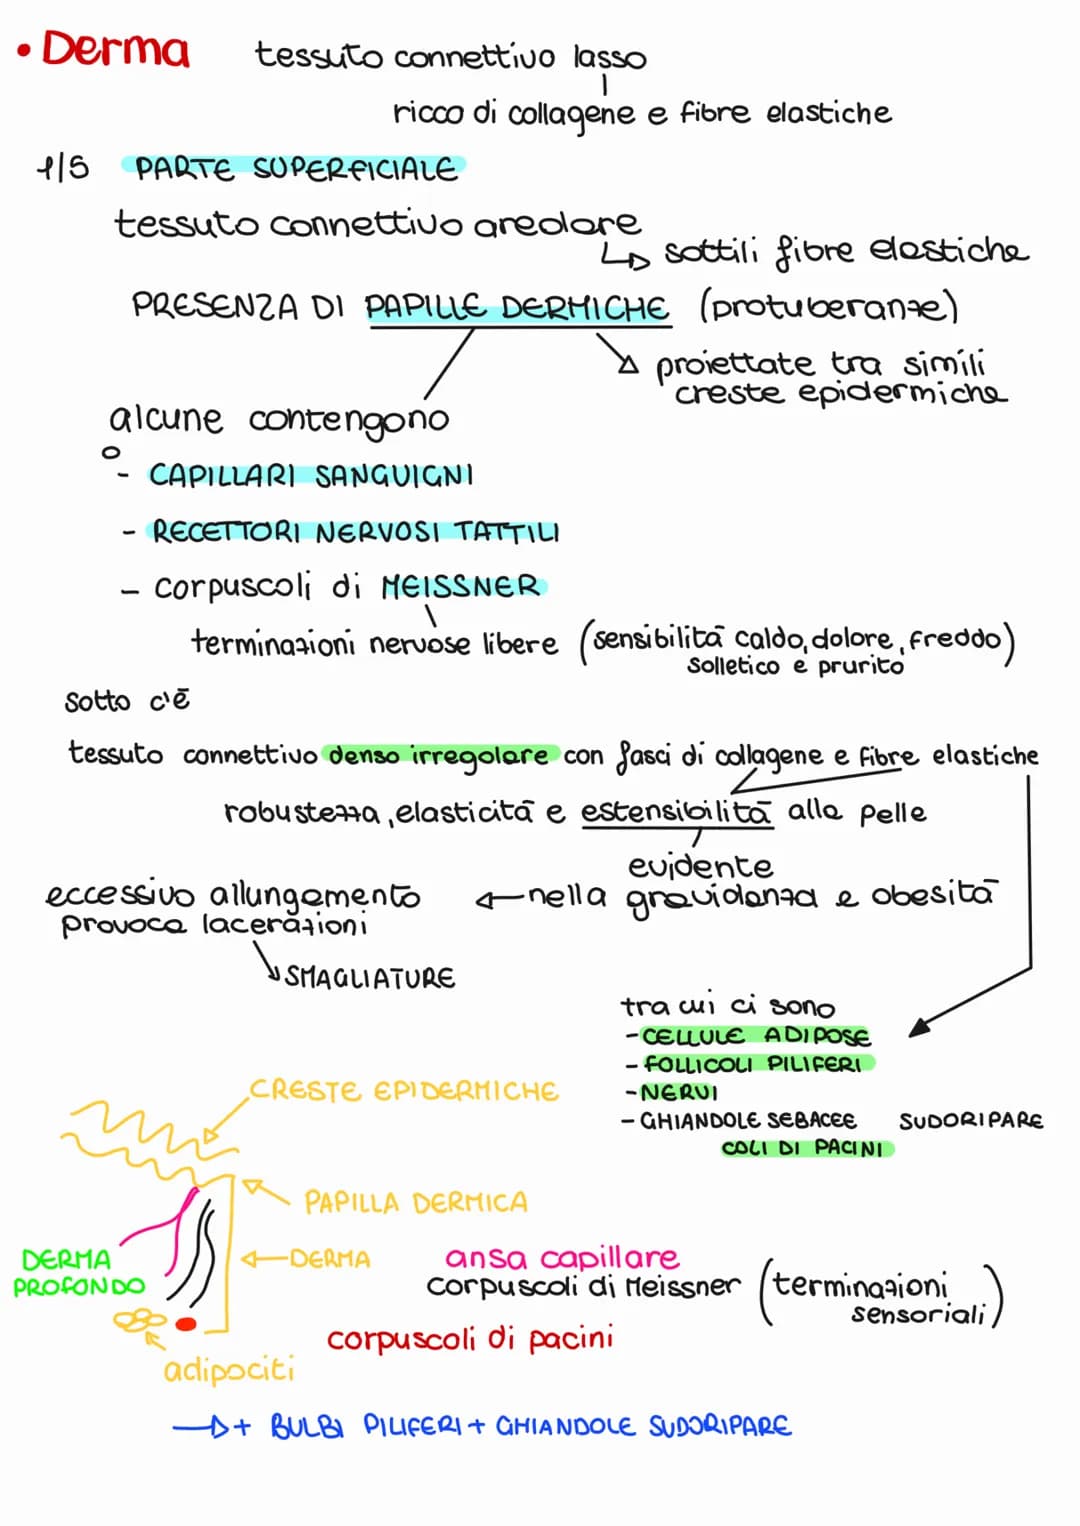 • Derma tessuto connettivo lasso
ricco di collagene e fibre elastiche
1/5 PARTE SUPERFICIALE
tessuto connettivo areolare
↳ sottili fibre elastiche
PRESENZA DI PAPILLE DERMICHE (protuberanze)
proiettate tra simili
creste epidermiche
alcune contengono
- CAPILLARI SANGUIGNI
- RECETTORI NERVOSI TATTILI
- corpuscoli di MEISSNER
terminazioni nervose libere (sensibilità caldo, dolore, freddo)
solletico e prurito
Sotto c'è
tessuto connettivo denso irregolare con fasci di collagene e fibre elastiche
robustezza, elasticità e estensibilità alla pelle
evidente
eccessivo allungamento ← nella gravidanza e obesità
provoca lacerazioni
SMAGLIATURE
tra cui ci sono
- CELLULE ADIPOSE
- FOLLICOLI PILIFERI
- NERVI
- GHIANDOLE SEBACEE SUDORIPARE
COLI DI PACINI
CRESTE EPIDERMICHE
PAPILLA DERMICA
DERMA PROFONDO
← DERMA
ansa capillare
corpuscoli di Meissner (terminazioni sensoriali)
corpuscoli di pacini
adipociti
→ + BULBI PILIFERI + GHIANDOLE SUDORIPARE